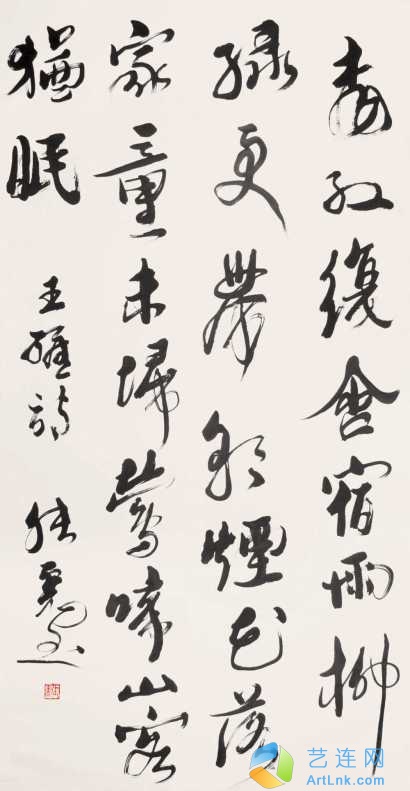 桃紅復含宿雨柳
綠更帶朝煙花落
家童未掃鶯啼山客
猶眠
王維詩
艺连网
ArtLnk.com